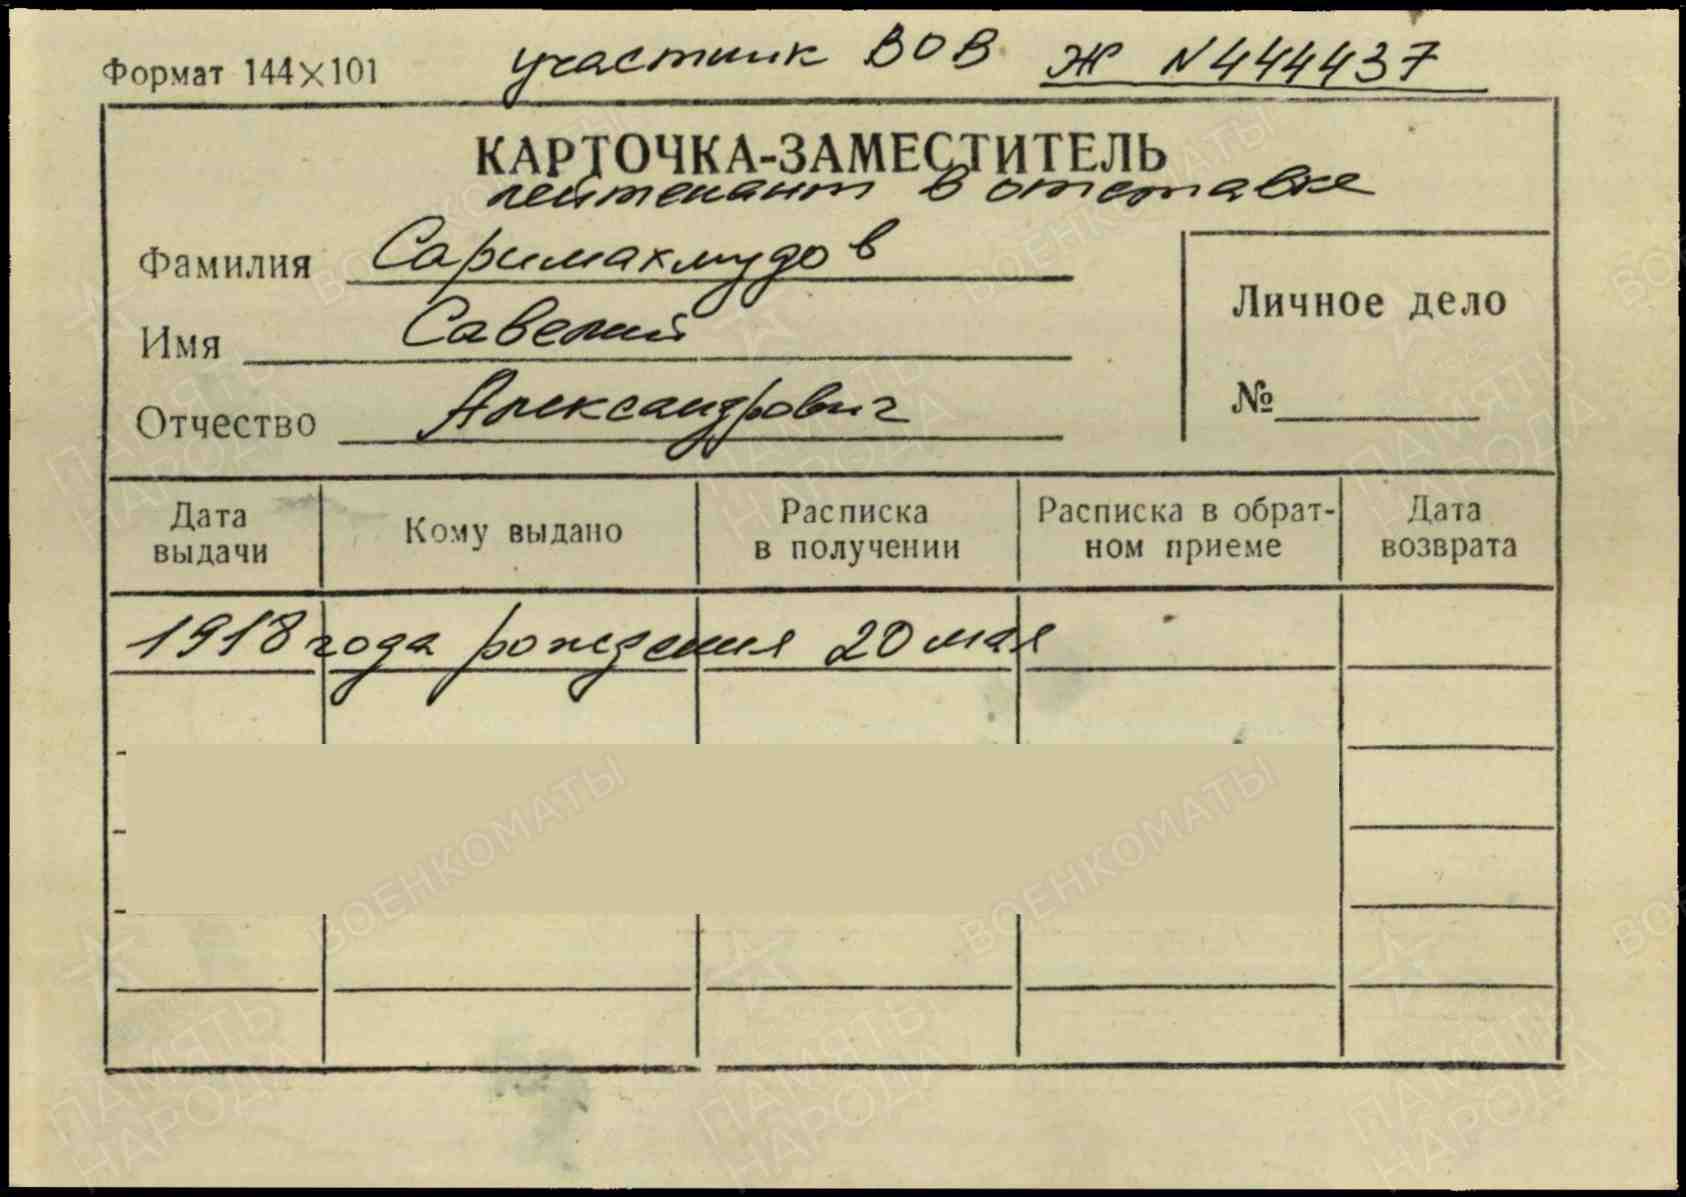 Формат 144×101 участник ВОВ Ж N444437
КАРТОЧКА-ЗАМЕСТИТЕЛЬ
лейтенант в отставке
Фамилия Саримахмудов
Имя Савелий
Отчество Александрович
Личное дело
№
Дата выдачи
Кому выдано
Расписка в получении
Расписка в обрат-
ном приеме
Дата возврата
1918 года рождения 20 мая
ВОЕНКОМАТЫ
ПАМЯТЬ
НАРОДА